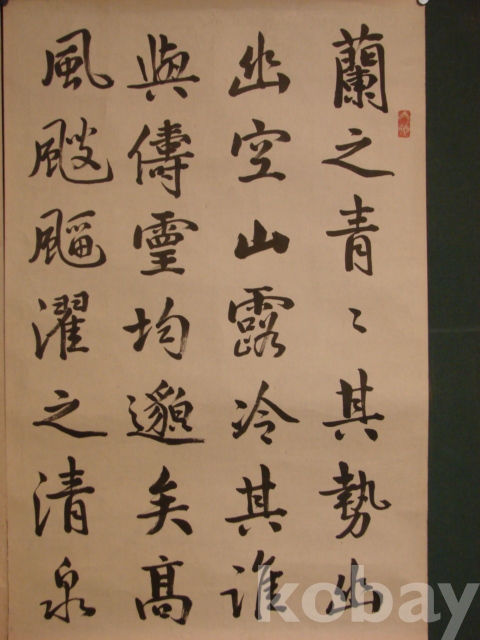 蘭之青〻其勢幽
幽空山露冷其誰
與儔霊均邈矣高
風颼飀濯之清泉
kobay